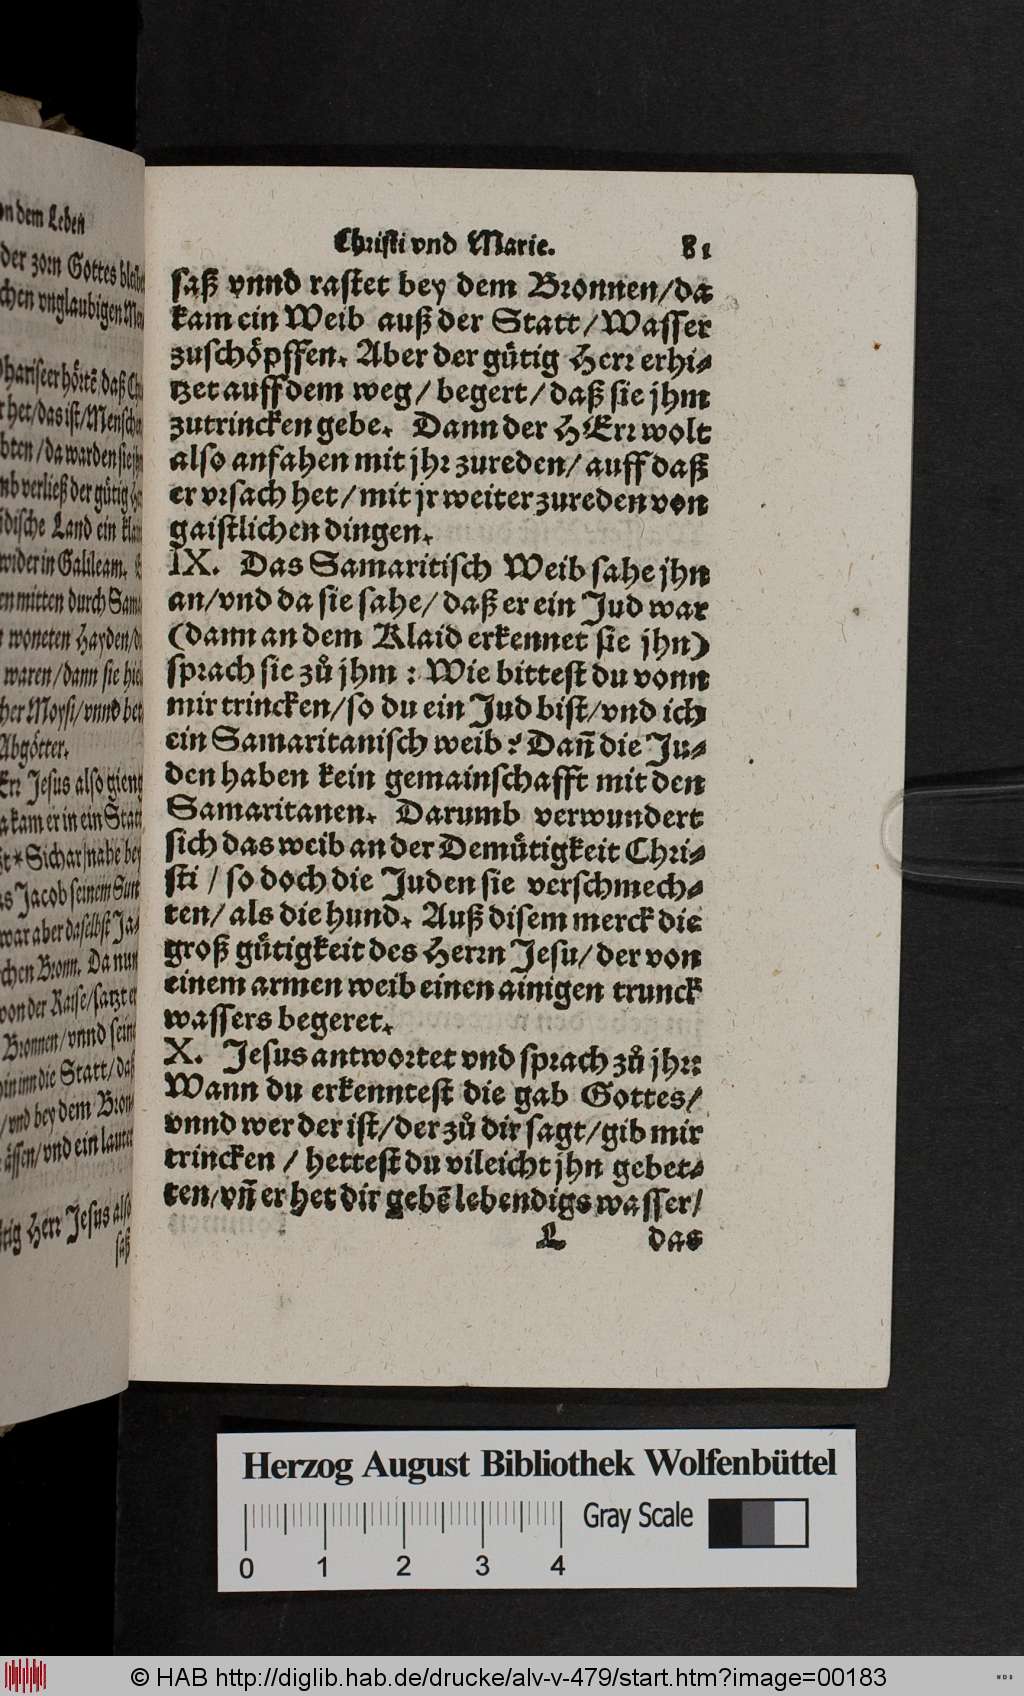 on dem Leben
der zorn Gottes
chen vnglaubigen
Phariseer hörtē/daß
het/das ist/Mensch
bten/da warden sie
vnb verließ der gütig
dische Land ein
wider in Galileam.
en mitten durch Sama
woneten Hayden/
waren/dann sie
cher Moysi/vnnd
Abgötter.
Err Jesus also gieng
a kam er in ein Statt
* Sichar/nahe bey
Jacob seinem Sun
war aber daselbst Ja-
chen Bronn. Da nun
von der Raise/satzt er
Bronnen/vnnd seine
hin inn die Statt/daß
/vnd bey dem Bron-
ässen/vnd ein lauter
tig Herr Jesus also
saß
Christi vnd Marie. 81
saß vnnd rastet bey dem Bronnen/da
kam ein Weib auß der Statt/Wasser
zuschöpffen. Aber der gütig Herr erhi-
tzet auff dem weg/begert/daß sie jhm
zutrincken gebe. Dann der HErr wolt
also anfahen mit jhr zureden/auff daß
er vrsach het/mit jr weiter zureden von
gaistlichen dingen.
IX. Das Samaritisch Weib sahe jhn
an/vnd da sie sahe/daß er ein Jud war
(dann an dem Klaid erkennet sie jhn)
sprach sie zů jhm: Wie bittest du vonn
mir trincken/so du ein Jud bist/vnd ich
ein Samaritanisch weib? Dañ die Ju-
den haben kein gemainschafft mit den
Samaritanen. Darumb verwundert
sich das weib an der Demütigkeit Chri-
sti/so doch die Juden sie verschmech-
ten/als die hund. Auß disem merck die
groß gütigkeit des Herrn Jesu/der von
einem armen weib einen ainigen trunck
wassers begeret.
X. Jesus antwortet vnd sprach zů jhr:
Wann du erkenntest die gab Gottes/
vnnd wer der ist/der zů dir sagt/gib mir
trincken/hettest du vileicht jhn gebet-
ten/vñ er het dir gebē lebendigs wasser/
L das
Herzog August Bibliothek Wolfenbüttel
Gray Scale
0 1 2 3 4
© HAB http://diglib.hab.de/drucke/alv-v-479/start.htm?image=00183